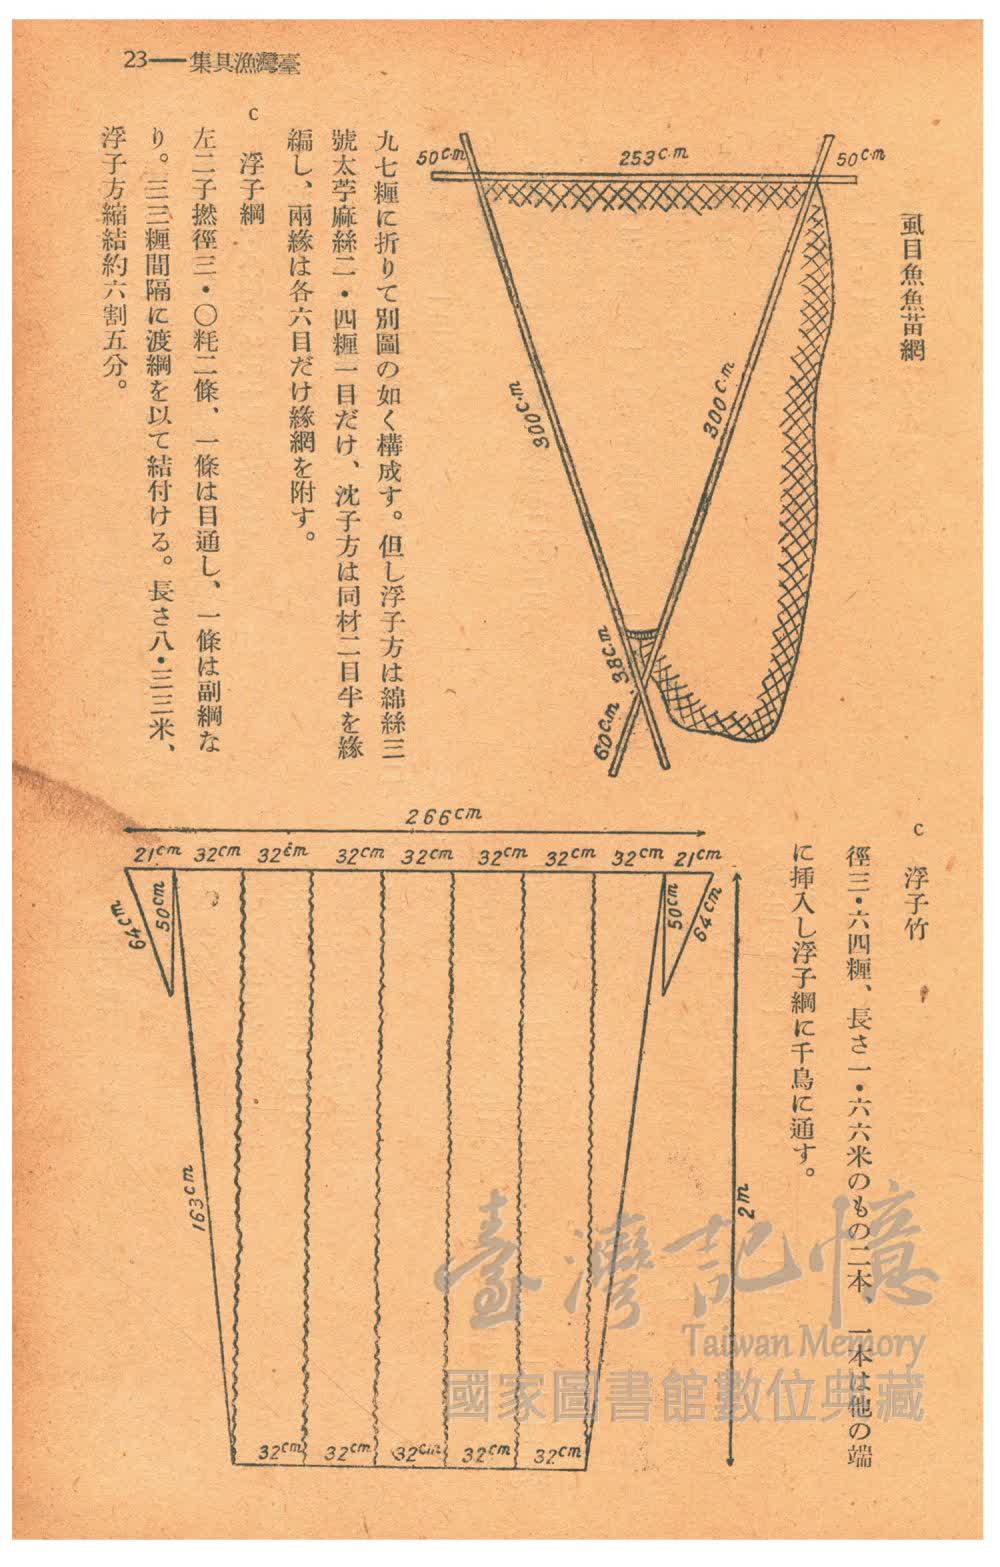 23——集具漁灣臺
虱目魚魚苗網
50c.m
253c.m
50c.m
300c.m
300c.m
38c.m
60c.m
九七糎に折りて別圖の如く構成す。但し浮子方は綿絲三
號太苧麻絲二・四糎一目だけ、沈子方は同材二目半を緣
編し、兩緣は各六目だけ緣網を附す。
c 浮子綱
左二子撚徑三・〇粍二條、一條は目通し、一條は副綱な
り。三三糎間隔に渡綱を以て結付ける。長さ八・三三米、
浮子方縮結約六割五分。
c 浮子竹
徑三・六四糎、長さ一・六六米のもの二本、一本は他の端
に挿入し浮子綱に千鳥に通す。
266cm
21cm 32cm 32cm 32cm 32cm 32cm 32cm 32cm 21cm
64cm
50cm
50cm
64cm
163cm
2m
32cm 32cm 32cm 32cm 32cm
臺灣記憶
Taiwan Memory
國家圖書館數位典藏